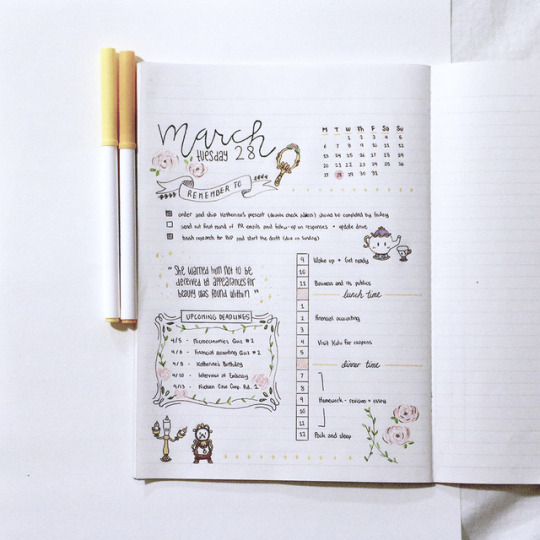 March
tuesday 28
M T W Th F Sa Su
1 2 3 4 5
6 7 8 9 10 11 12
13 14 15 16 17 18 19
20 21 22 23 24 25 26
27 28 29 30 31
REMEMBER TO
order and ship Katherina's present (double check address) should be completed by friday
send out first round of PR emails and follow-up on responses + update drive
finish research for and start the draft (due on Sunday)
"She warned him not to be
deceived by appearances for
beauty was found within"
UPCOMING DEADLINES
4/5 - Microeconomics Quiz #2
4/8 - Financial Accounting Quiz #2
4/9 - Katherina's Birthday
4/10 - Interview at Embassy
4/13 - Case Comp Rd. 2
9 Wake up + Get ready
10
11 Business and its publics
lunch time
1
2 Financial accounting
3
4 Visit for coupons
5
dinner time
7
8
9 Homework - revision + essay
10
11
12 Pack and sleep